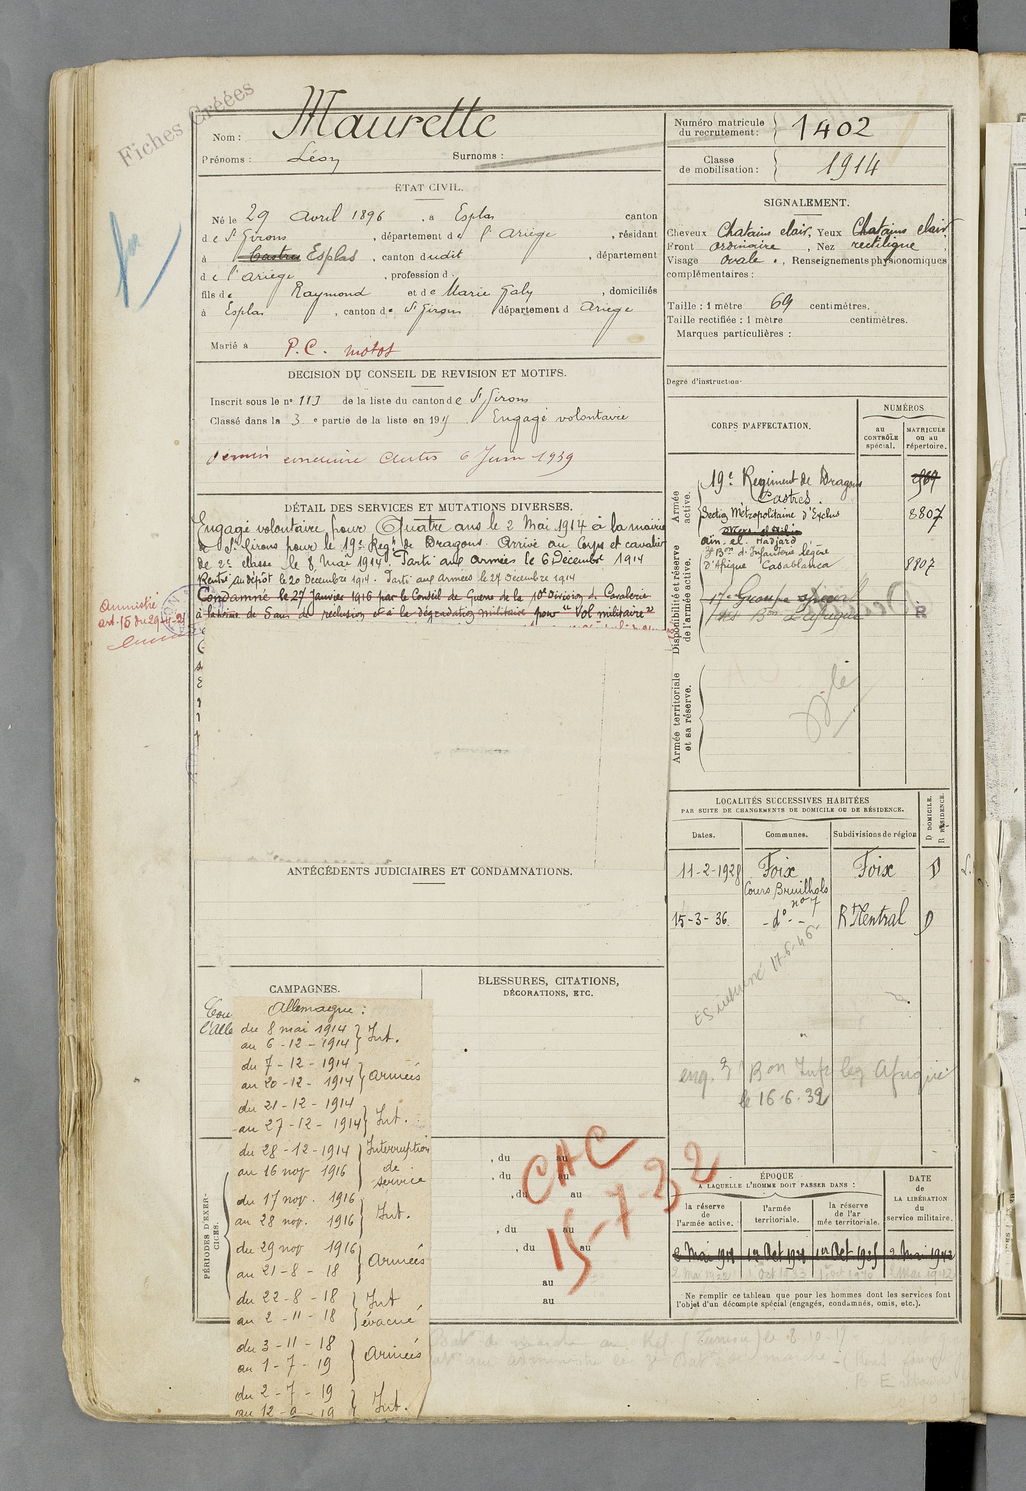 Fiches Créées
Nom : Maurette
Prénoms : Léon Surnoms :
Numéro matricule du recrutement : 1402
Classe de mobilisation : 1914
ÉTAT CIVIL.
Né le 29 avril 1896, à Esplas canton
de St Girons, département de l'Ariège, résidant
à Castres Esplas, canton dudit, département
de l'Ariège, profession d
fils de Raymond et de Marie Galy, domiciliés
à Esplas, canton de St Girons département d Ariège
Marié à
P.C. motos
SIGNALEMENT.
Cheveux Chatains clair, Yeux Chatains clair
Front ordinaire, Nez rectiligne
Visage ovale, Renseignements physionomiques
complémentaires :
Taille : 1 mètre 69 centimètres.
Taille rectifiée : 1 mètre centimètres.
Marques particulières :
Degré d'instruction
DECISION DU CONSEIL DE REVISION ET MOTIFS.
Inscrit sous le n° 113 de la liste du canton de St Girons
Classé dans la 3e partie de la liste en 1915 Engagé volontaire
6 Juin 1939
DÉTAIL DES SERVICES ET MUTATIONS DIVERSES.
Engagé volontaire pour Quatre ans le 2 Mai 1914 à la mairie
de St Girons pour le 19e Regt de Dragons. Arrivé au Corps et cavalier
de 2e classe le 8 Mai 1914. Parti aux armées le 6 Decembre 1914
Rentré au Dépôt le 20 Decembre 1914. Parti aux Armées le 27 Décembre 1914
Condamné le 27 Janvier 1916 par le Conseil de Guerre de la 10e Division de Cavalerie
à la peine de 5 ans de réclusion et à la dégradation militaire pour "Vol militaire"
Amnistié
art. 15 du 29-4-21
CORPS D'AFFECTATION.
NUMÉROS
au CONTRÔLE spécial.
MATRICULE ou au répertoire.
Armée active.
19e Regiment de Dragons
Castres.
Section Métropolitaine d'Exclus 8807
Disponibilité et réserve de l'armée active.
ain. el. Hadjard
3e Bon d'Infanterie légère
d'Afrique Casablanca 8807
17e Groupe spécial
R
Armée territoriale et sa réserve.
LOCALITÉS SUCCESSIVES HABITÉES
PAR SUITE DE CHANGEMENTS DE DOMICILE OU DE RÉSIDENCE.
Dates. Communes. Subdivisions de région D DOMICILE. R RÉSIDENCE.
11-2-1928 Foix Foix D
Cours Bruilhols
n° 7
15-3-36 - d° - Rt Central D
17-6-46
eng. 3e Bon Inf leg Afrique
le 16-6-32
ANTÉCÉDENTS JUDICIAIRES ET CONDAMNATIONS.
CAMPAGNES.
BLESSURES, CITATIONS,
DÉCORATIONS, ETC.
Allemagne :
du 8 mai 1914
au 6-12-1914 } Int.
du 7-12-1914
au 20-12-1914 } Armées
du 21-12-1914
au 27-12-1914 } Int.
du 28-12-1914 } Interruption
au 16 nov 1916 de service
du 17 nov. 1916
au 28 nov. 1916 } Int.
du 29 nov 1916
au 21-8-18 } Armées
du 22-8-18 } Int
au 2-11-18 évacué
du 3-11-18
au 1-7-19 } Armées
du 2-7-19
au 12-9-19 } Int.
PÉRIODES D'EXERCICES.
, du au
, du au
, du au
, du au
, du au
au
au
CAC
15-7-32
ÉPOQUE
A LAQUELLE L'HOMME DOIT PASSER DANS :
la réserve de l'armée active.
l'armée territoriale.
la réserve de l'armée territoriale.
DATE de LA LIBÉRATION du service militaire.
Ne remplir ce tableau que pour les hommes dont les services font
l'objet d'un décompte spécial (engagés, condamnés, omis, etc.).